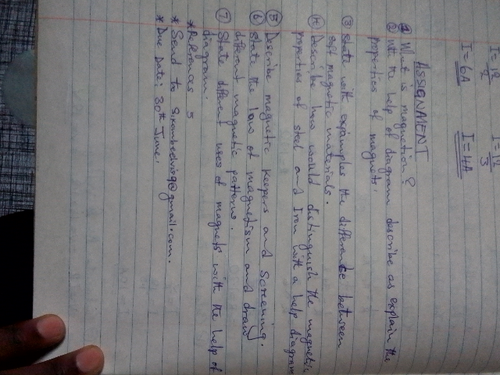 I = 12
2
I = 12
3
I = 6A
I = 4A
ASSIGNMENT
① What is magnetism?
② with the help of diagram describe as explain the
properties of magnets.
③ State with examples the difference between
soft magnetic materials.
④ Describe how would distinguish the magnetic
properties of steel and Iron with a help diagram
⑤ Describe magnetic keepers and screening.
⑥ State the law of magnetism and draw
different magnetic patterns.
⑦ State different uses of magnets with the help of
diagram.
* References 5
* Send to
@gmail.com.
* Due Date: 30th June.